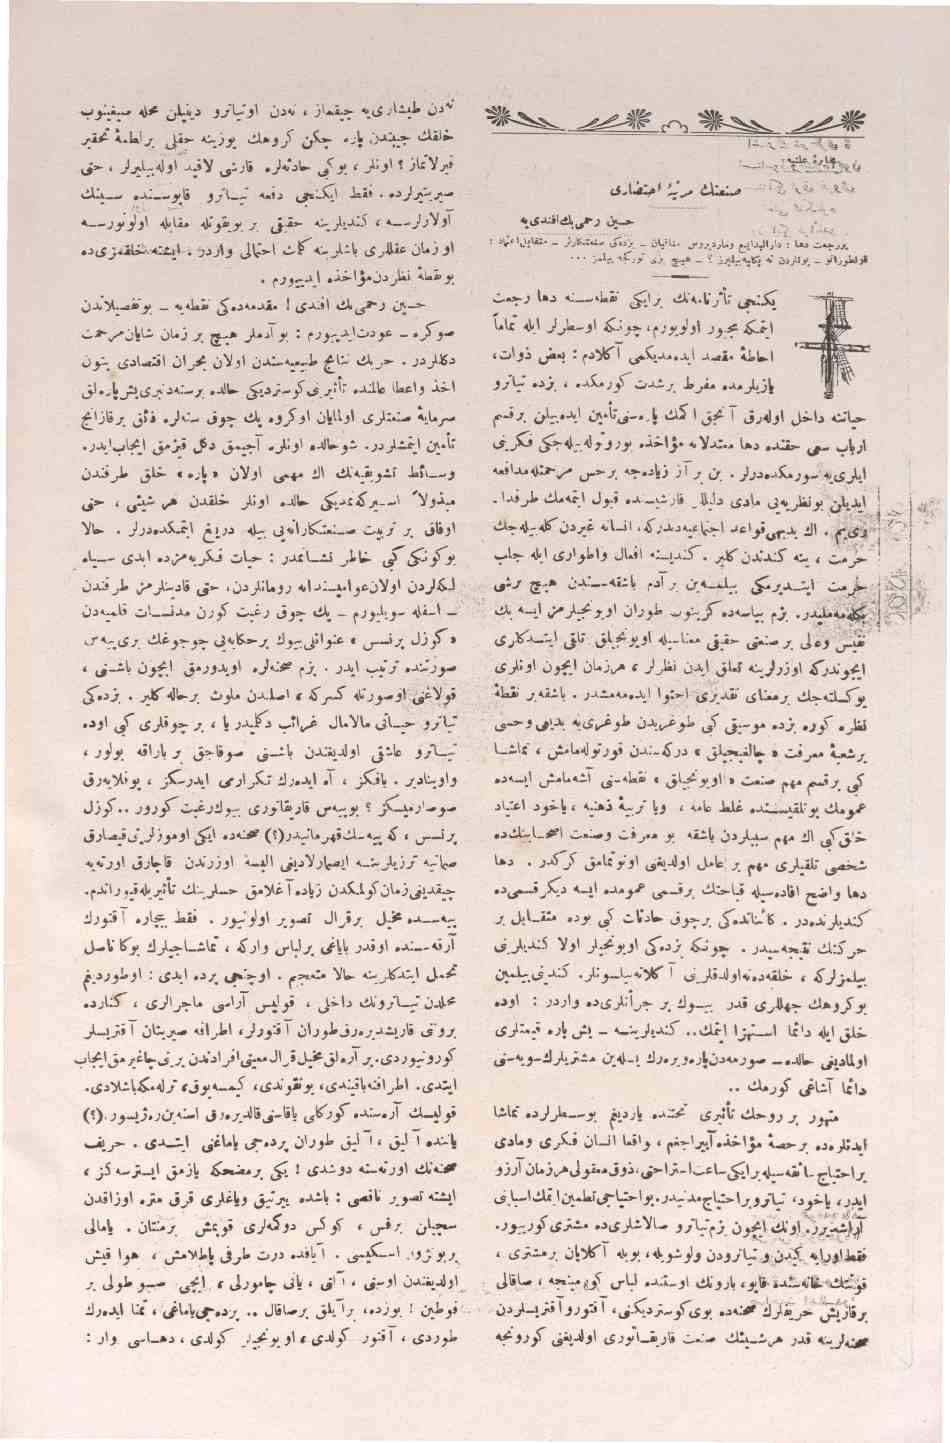 صنعتك مرثيهٔ احتضاری
حسین رحمی بك افندی یه
یكنجی تأثرنامه‌نك برایكی نقطه‌سنه دها رجعت
ایتمكه مجبور اولویورم، چونكه اوسطرلر ایله تماماً
احاطهٔ مقصد ایده‌مدیكمی آكلادم : بعض ذوات،
یازیلرمده مفرط برشدت كورمكده ، بزده تیاترو
حیاتنه داخل اوله‌رق آنجق اكمك پاره‌سنی تأمین ایده‌بیلن برقسم
ارباب سعی حقنده دها معتدلانه مؤاخذه یورو‌توله‌بیله‌جكی فكرینی
ایلری‌یه سورمكده‌درلر . بن بر آز زیاده‌جه برحس مرحمتله مدافعه
ایدیلن بونظریه‌یی مادی دلیللر قارشیسنده قبول ایتمه‌مك طرفدا-
ری‌یم . اك بدیهی قواعد اجتماعیه‌دندركه، انسانه غیردن كله‌بیله‌جك
حرمت ، ینه كندندن كلیر . كندیسنه افعال واطواری ایله جلب
حرمت ایتدیرمكی بیلمه‌ین بر آدم باشقه‌سندن هیچ برشی
بكله‌مه‌ملیدر. بزم پیاسه‌ده كزینوب طوران اویونجیلرمز ایسه بك
نفیس وعالی بر صنعتی حقیقی معناسیله اویونجیلق تلقی ایتدكلری
ایچوندركه اوزرلرینه تعلق ایدن نظرلر ، هرزمان ایچون اونلری
یوكسلته‌جك برمعنای تقدیری احتوا ایده‌مه‌مشدر . باشقه بر نقطهٔ
نظره كوره بزده موسیقی كبی طوغریدن طوغری‌یه بدیعی وحسی
برشعبهٔ معرفت « چالغیجیلق » دركه‌سندن قورتوله‌مامش ، تماشا
كبی برقسم مهم صنعت « اویونجیلق » نقطه‌سنی آشه‌مامش ایسه‌ده
عمومك بوتلقیسنده غلط عامه ، ویا تربیهٔ ذهنیه ، یاخود اعتیاد
خلق كبی اك مهم سببلردن باشقه بو معرفت وصنعت اصحابنك‌ده
شخصی تلقیلری مهم بر عامل اولدیغنی اونوتمامق كركدر . دها
دها واضح افاده‌سیله قباحتك برقسمی عمومده ایسه دیكر قسمی‌ده
كندیلرنده‌در . كائناتده‌كی برچوق حادثات كبی بوده متقابل بر
حركتك نتیجه‌سیدر . چونكه بزده‌كی اویونجیلر اولا كندیلرینی
بیلمزلركه ، خلقه‌ده نه اولدقلرینی آكلاته‌بیلسونلر. كندینی بیلمین
بوكروهك جهللری قدر بیوك بر جرأتلری‌ده واردر : اوده
خلق ایله دائما استهزا ایتمك.. كندیلرینه ـ بش پاره قیمتلری
اولمادیغی حالده ـ صورمه‌دن پاره ویره‌رك كله‌ین مشتریلرك سویه‌سنی
دائما آشاغی كورمك ..
متهور بر روحك تأثیری تحتنده یازدیغم بوسطرلرده تماشا
ایدنلره‌ده برحصهٔ مؤاخذه آییراجغم ، واقعا انسان فكری ومادی
براحتیاج سائقه‌سیله برایكی ساعت استراحتی، ذوق معقولی هرزمان آرزو
ایدر، یاخود، تیاترو براحتیاج مدنیدر. بواحتیاجی تطمین ایتمك اسبابی
آراشدیرر. اونك ایچون بزم تیاترو صالاشلری‌ده مشتری كوریور.
فقط اورایه كیدن و تیاترودن ولوشویله، بویله آكلایان برمشتری ،
قونتك خانه‌سنده قاپو، بارونك اوستنده لباس كورمینجه ، صاقالی
برقازیش حریفلرك صحنه‌ده بوی كوستردیكنی، آقتور وآقتریسلردن
صحنه‌لرینه قدر هرشیئك صنعت قاریقاتوری اولدیغنی كورونجه
نه‌دن طیشاری‌یه چیقماز ، نه‌دن اوتیاترو دینیلن محله صیغینوب
خلقك جیبندن پاره چكن كروهك یوزینه حقلی برلطمهٔ تحقیر
فیرلاتماز ؟ اونلر ، بوكبی حادثه‌لره قارشی لاقید اوله‌بیلیرلر ، حتی
صیریتیرلرده. فقط ایكنجی دفعه تیاترو قاپوسنده سینك
آولارلرسه ، كندیلرینه حقیقی بر بویقوتله مقابله اولونورسه
او زمان عقللری باشلرینه كلمك احتمالی واردر . ایشته خلقمزی‌ده
بونقطهٔ نظردن مؤاخذه ایدییورم .
حسین رحمی بك افندی ! مقدمه‌ده‌كی نقطه‌یه ـ بوتفصیلاتدن
صوكره ـ عودت ایدییورم : بو آدملر هیچ بر زمان شایان مرحمت
دكللردر . حربك نتایج طبیعیه‌سندن اولان بحران اقتصادی بتون
اخذ واعطا عالمنده تأثیرینی كوستردیكی حالده برسنه‌دنبری بش پاره‌لق
سرمایهٔ صنعتلری اولمایان اوكروه پك چوق سنه‌لره فائق برقازانج
تأمین ایتمشلردر. شو حالده اونلره آجیمق دكل قیزمق ایجاب ایدر.
وسائط تشویقیه‌نك اك مهمی اولان « پاره » خلق طرفندن
مبذولاً اسیركه‌نمدیكی حالده اونلر خلقدن هر شیئی ، حتی
اوفاق بر تربیت صنعتكارانه‌یی بیله دریغ ایتمكده‌درلر . حالا
بوكونكی كبی خاطر نشانمدر : حیات فكریه‌مزده ابدی سیاه
لكه‌لردن اولان عوامپسندانه رومانلردن، حتی قادینلرمز طرفندن
ـ اسفله سویلیورم ـ پك چوق رغبت كورن مدنسات قلمیه‌دن
« كوزل پرنسس » عنوانلی بیوك برحكایه‌یی چوجوغك بری پیه‌س
صورتنده ترتیب ایدر . بزم صحنه‌لره اویدورمق ایچون باشنی ،
قولاغنی اوصورتله كسركه ، اصلندن ملوث برحاله كلیر . بزده‌كی
تیاترو حیاتی مالامال غرائب دكلیدر یا ، بر چوقلری كبی اوده
تیاترو عاشقی اولدیغندن باشنی صوقاجق بر باراقه بولور ،
واوینادیر. باقكز ، آه ایده‌رك تكرارمی ایدرسكز ، پوفلایه‌رق
صوصارمیسكز ؟ بوپیه‌س قاریقاتوری بیوك رغبت كورور ..كوزل
پرنسس ، كه پیه‌سك قهرمانیدر(؟) صحنه‌ده ایكی اوموزلرینی قیصارق
صمانیه ترزیلرینه ایصمارلادیغی البسه اوزرندن قاچارق اورته‌یه
چیقدیغی زمان كولمكدن زیاده آغلامق حسلرینك تأثیریله قیوراندم.
پیه‌سده مخیل برقرال تصویر اولونیور . فقط بیچاره آقتورك
آرقه‌سنده اوقدر بایاغی برلباس واركه ، تماشاجیلرك بوكا ناصل
تحمل ایتدكلرینه حالا متعجبم . اوچنجی پرده ایدی : اوطوردیغم
محلدن تیاترونك داخلی ، قولیس آراسی ماجرالری ، كنارده
بروتنی قاریشدیره‌رق طوران آقتورلر، اطرافه صیریتان آقتریسلر
كورونیوردی. بر آره‌لق مخیل قرال معیتی افرادندن برینی چاغیرمق ایجاب
ایتدی. اطرافنه باقیندی، یوتقوندی، كیمسه‌یوق، ترله‌مكه باشلادی.
قولیسك آره‌سنده كورركابی یاقاسنی قالدیره‌رق اسنه‌ین ره‌ژیسور.(؟)
یاننده آلیق ، آلیق طوران پرده‌جی یاماغنی ایتدی . حریف
صحنه‌نك اورته‌سنه دوشدی ! یكی برمضحكه یازمق ایسترسه‌كز ،
ایشته تصویر ناقصی : باشده ییرتیق ویاغلری قرق متره اوزاقدن
سچیلن برفس ، كوكس دوكمه‌لری قوپمش برمنتان . یامالی
اولدیغندن اوستی ، آلتی ، یانی چامورلی ، ایچی صیوطولی بر
فوطین ! یوزده، برآیلق برصاقال .. پرده‌جی یاماغی ، تمنا ایده‌رك
طوردی ، آقتور كولدی ، اویونجیلر كولدی ، دهاسی وار :